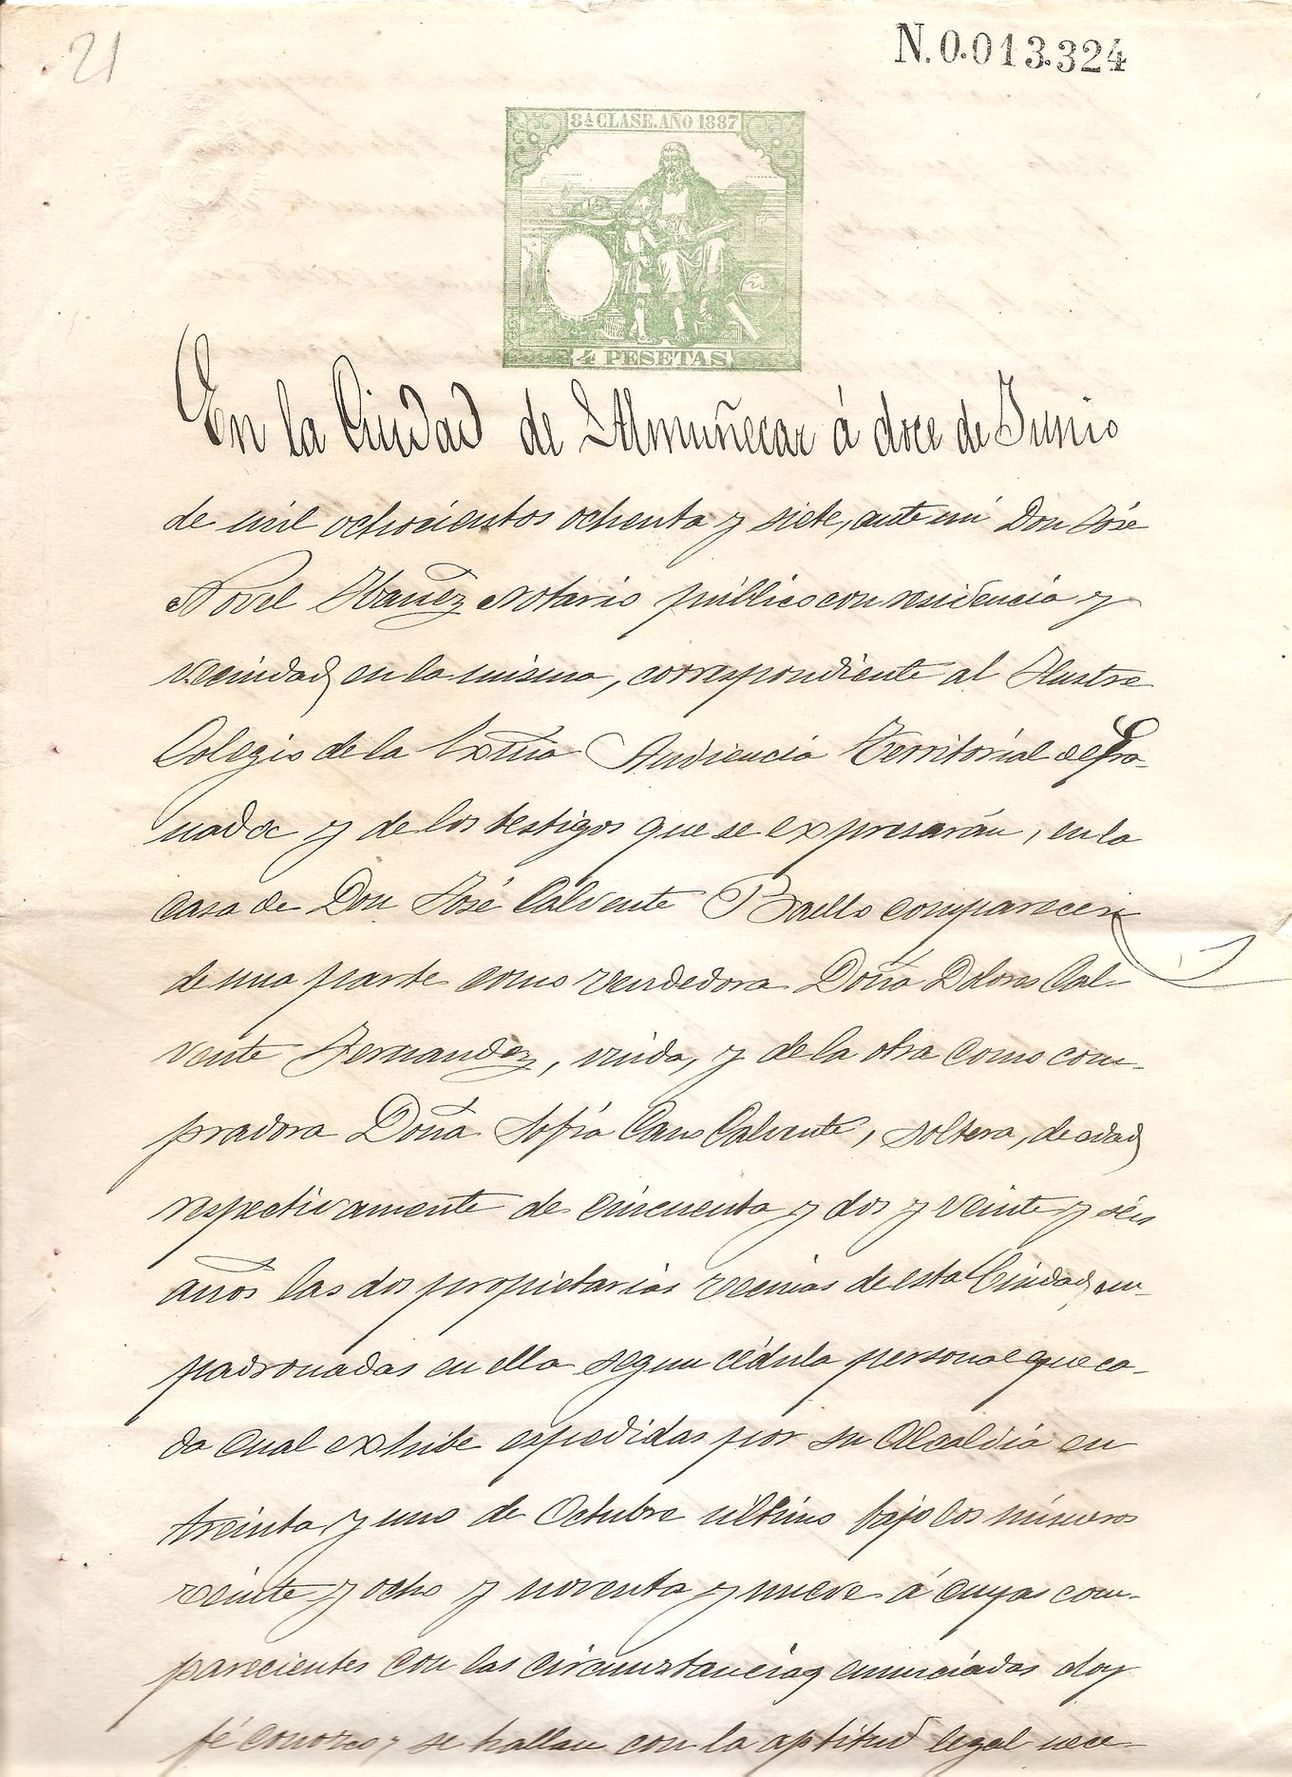 21
N.0.013.324
8ª CLASE. AÑO 1887
4 PESETAS
En la Ciudad de Almuñecar á doce de Junio
de mil ochocientos ochenta y siete, ante mi Don José
Novel Ibañez Notario público con residencia y
vecindad en la misma, correspondiente al Ilustre
Colegio de la Exma Audiencia Territorial de Gra-
nada y de los testigos que se expresarán, en la
casa de Don José Calvente comparecen
de una parte como vendedora Doña Dolores Cal-
vente Fernandez, viuda, y de la otra como com-
pradora Doña Sofía Cano Calvente, soltera, de edad
respectivamente de cincuenta y dos y veinte y seis
años las dos propietarias vecinas de esta Ciudad, em-
padronadas en ella segun cédula personal que ca-
da cual exhibe espedidas por su Alcaldía en
treinta y uno de Octubre último bajo los números
veinte y ocho y noventa y nueve á cuyas com-
parecientes con las circunstancias enunciadas doy
fé conozco; se hallan con la aptitud legal nece-